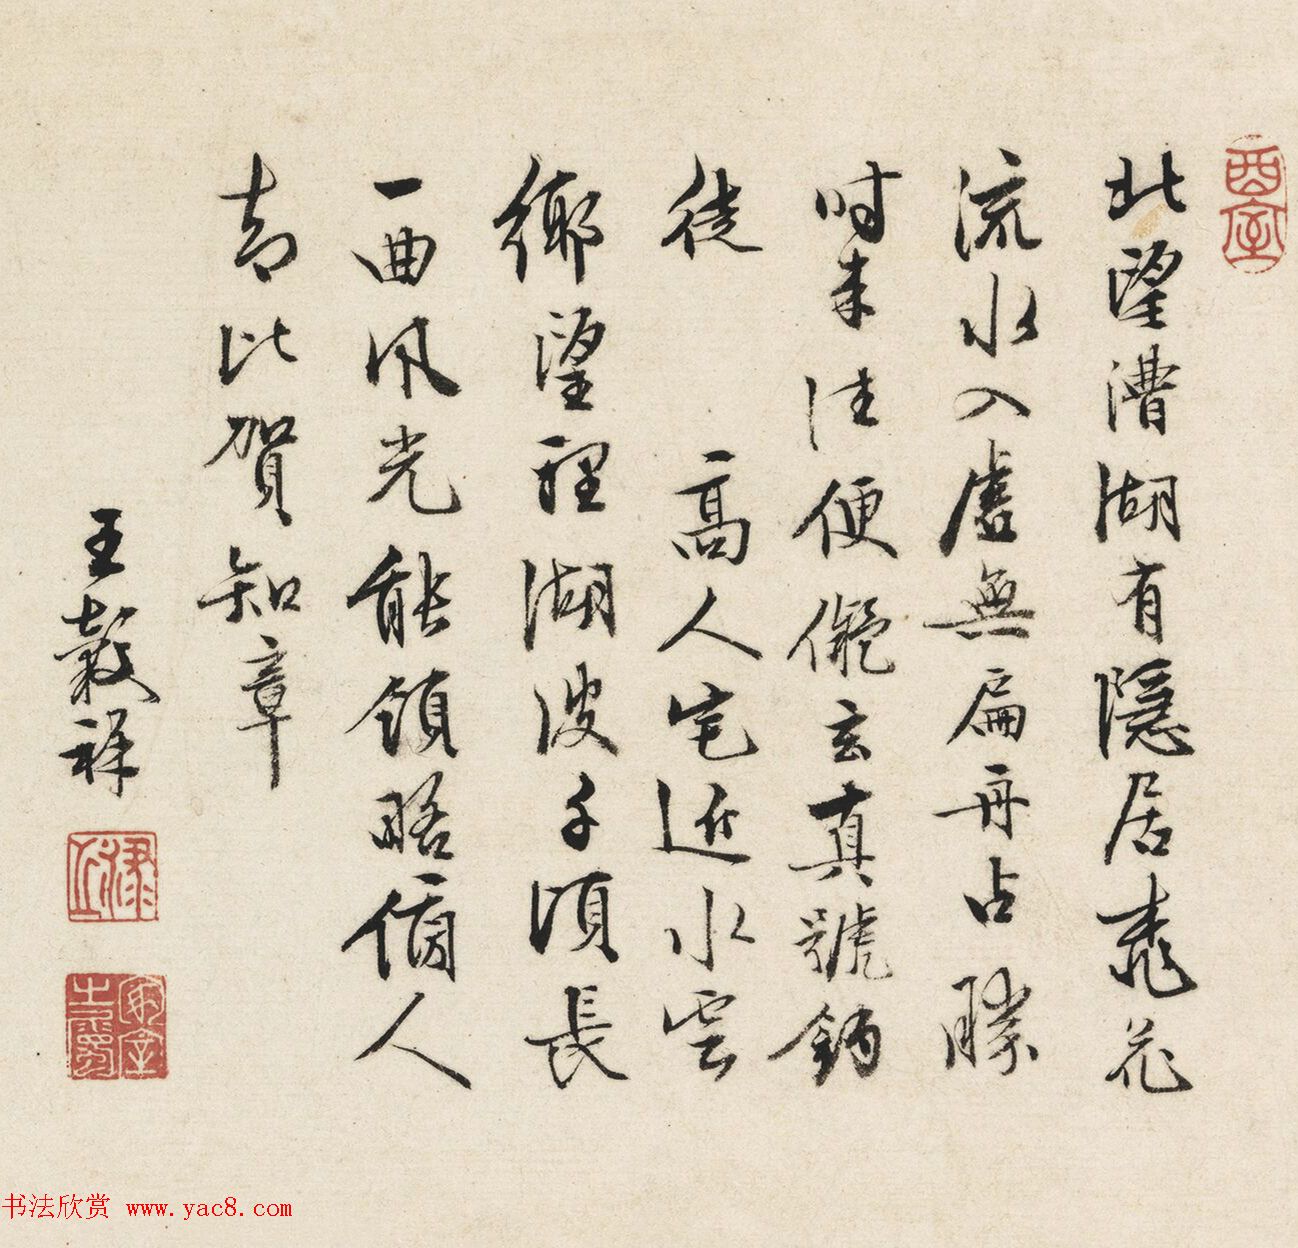 北望漕湖有隱居桃花
流水入虛無扁舟占勝
時来往便儗玄真號釣
徒　高人宅近水雲
鄉望裡湖波千頃長
一曲風光能領略個人
却比賀知章
王穀祥
酉室
书法欣赏 www.yac8.com